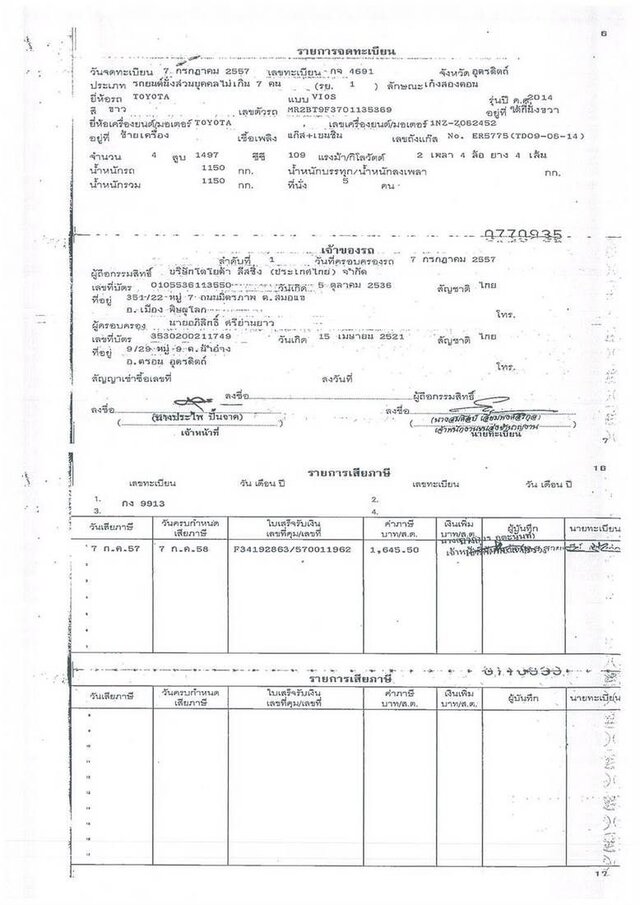 6
รายการจดทะเบียน
วันจดทะเบียน 7 กรกฎาคม 2557 เลขทะเบียน กจ 4691 จังหวัด อุตรดิตถ์
ประเภท รถยนต์นั่งส่วนบุคคลไม่เกิน 7 คน (รย. 1) ลักษณะ เก๋งสองตอน
ยี่ห้อรถ TOYOTA แบบ VIOS รุ่นปี ค.ศ. 2014
สี ขาว เลขตัวรถ MR2BT9F3701135369 อยู่ที่ ใต้ที่นั่งขวา
ยี่ห้อเครื่องยนต์/มอเตอร์ TOYOTA เลขเครื่องยนต์/มอเตอร์ 1NZ-Z062452
อยู่ที่ ซ้ายเครื่อง เชื้อเพลิง แก๊ส+เบนซิน เลขถังแก๊ส No. ER5775(TD09-06-14)
จำนวน 4 สูบ 1497 ซีซี 109 แรงม้า/กิโลวัตต์ 2 เพลา 4 ล้อ ยาง 4 เส้น
น้ำหนักรถ 1150 กก. น้ำหนักบรรทุก/น้ำหนักลงเพลา กก.
น้ำหนักรวม 1150 กก. ที่นั่ง 5 คน
0770935
เจ้าของรถ
ลำดับที่ 1 วันที่ครอบครองรถ 7 กรกฎาคม 2557
ผู้ถือกรรมสิทธิ์ บริษัทโตโยต้า ลีสซิ่ง (ประเทศไทย) จำกัด
เลขที่บัตร 0105536113550 วันเกิด 5 ตุลาคม 2536 สัญชาติ ไทย
ที่อยู่ 351/22 หมู่ 7 ถนนมิตรภาพ ต.สมอแข
อ.เมือง พิษณุโลก โทร.
ผู้ครอบครอง นายอภิสิทธิ์ ศรีย่านยาว
เลขที่บัตร 3530200211749 วันเกิด 15 เมษายน 2521 สัญชาติ ไทย
ที่อยู่ 9/29 หมู่ 9 ต.น้ำอ่าง
อ.ตรอน อุตรดิตถ์ โทร.
สัญญาเช่าซื้อเลขที่ ลงวันที่
ลงชื่อ ผู้ถือกรรมสิทธิ์
ลงชื่อ ลงชื่อ
(นางประไพ ปั้นจาด)
เจ้าหน้าที่ นายทะเบียน
7
รายการเสียภาษี
16
เลขทะเบียน วัน เดือน ปี เลขทะเบียน วัน เดือน ปี
1. กง 9913 2.
3. 4.
วันเสียภาษี วันครบกำหนดเสียภาษี ใบเสร็จรับเงิน เลขที่คุม/เลขที่ ค่าภาษี บาท/ส.ต. เงินเพิ่ม บาท/ส.ต. ผู้บันทึก นายทะเบียน
7 ก.ค.57 7 ก.ค.58 F34192863/570011962 1,645.50
รายการเสียภาษี
วันเสียภาษี วันครบกำหนดเสียภาษี ใบเสร็จรับเงิน เลขที่คุม/เลขที่ ค่าภาษี บาท/ส.ต. เงินเพิ่ม บาท/ส.ต. ผู้บันทึก นายทะเบียน
17